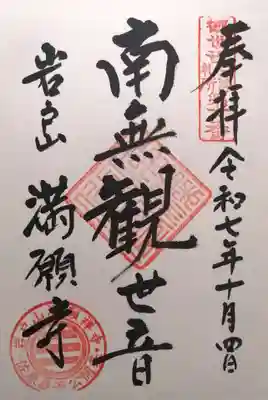 奉拝 令和七年十月四日
南無観世音
岩戸山 満願寺